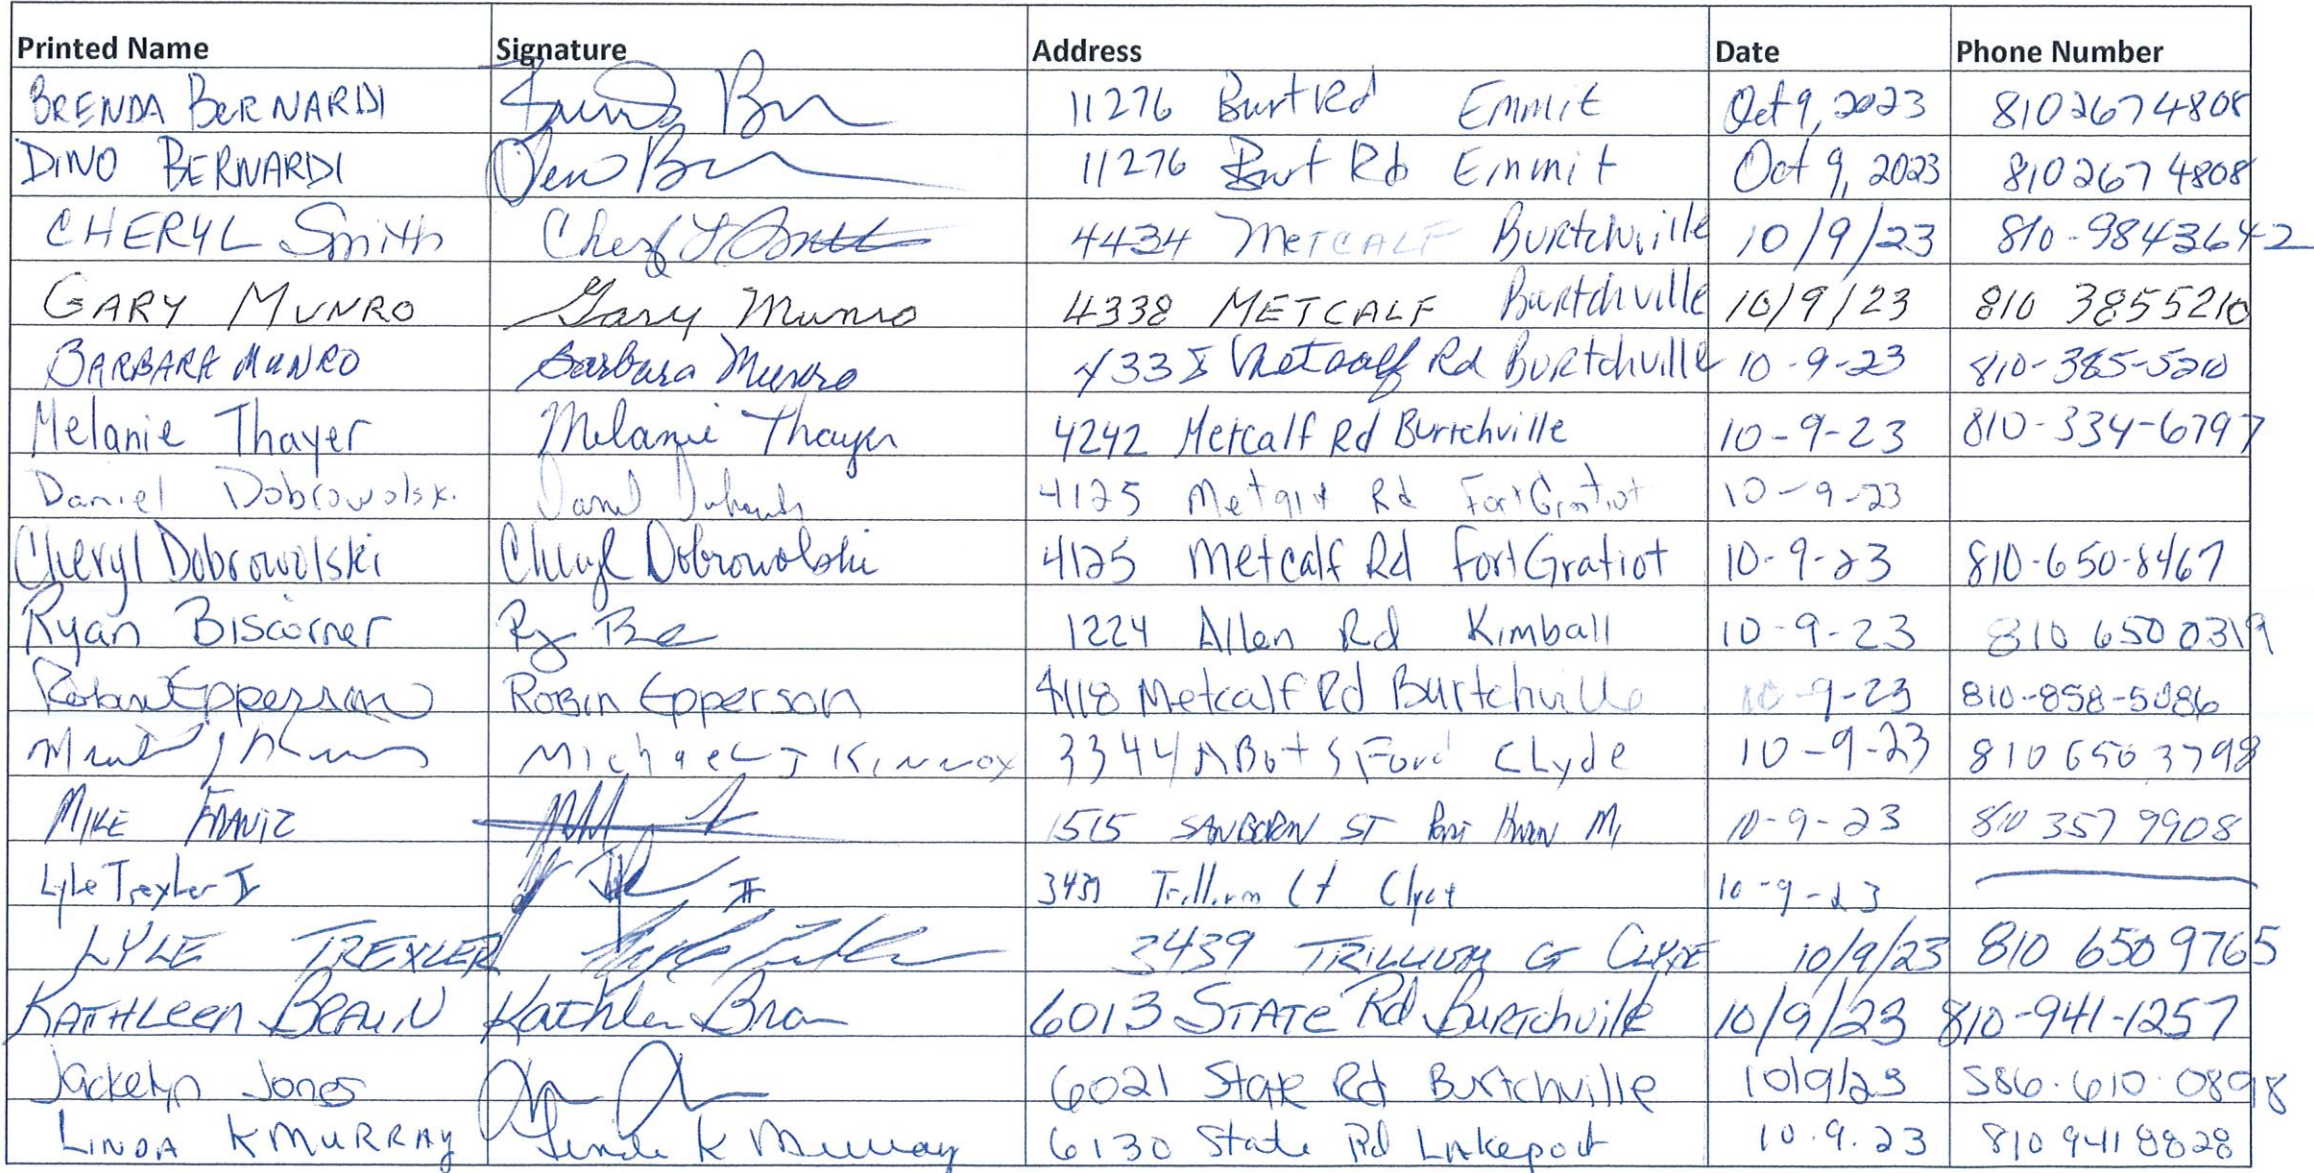 Printed Name Signature Address Date Phone Number
BRENDA BERNARDI 11276 Burt Rd Emmit Oct 9, 2023 8102674808
DINO BERNARDI 11276 Burt Rd Emmit Oct 9, 2023 8102674808
CHERYL Smith 4434 METCALF BURtchville 10/9/23 810-9843642
GARY MUNRO Gary Munro 4338 METCALF Burtchville 10/9/23 810 3855210
BARBARA MUNRO Barbara Munro Metcalf Rd BURtchville 10-9-23 810-385-5210
Melanie Thayer Melanie Thayer 4242 Metcalf Rd Burtchville 10-9-23 810-334-6797
Daniel Dobrowolski 4125 Rd Fort Gratiot 10-9-23
Cheryl Dobrowolski Cheryl Dobrowolski 4125 Metcalf Rd Fort Gratiot 10-9-23 810-650-8467
Ryan Biscorner 1224 Allen Rd Kimball 10-9-23 810 650 0319
Robin Epperson RoBin Epperson 4118 Metcalf Rd Burtchville 10-9-23
Michael J Kinnox 3344 ABotsFord Clyde 10-9-23 810 650 3798
MIKE 1515 SANBORN ST Port Huron MI 10-9-23 810 357 9908
Lyle Trexler II II Trillium Ct Clyde 10-9-23
LYLE TREXLER 3439 TRILLIUM Ct CLYDE 10/9/23 810 650 9765
KATHLEEN BRAUN Kathleen Braun 6013 STATE Rd BURTchville 10/9/23 810-941-1257
Jackelyn Jones 6021 State Rd Burtchville 10/9/23 586.610.0898
LINDA K MURRAY Linda K Murray 6130 State Rd Lakeport 10.9.23 810 941 8828